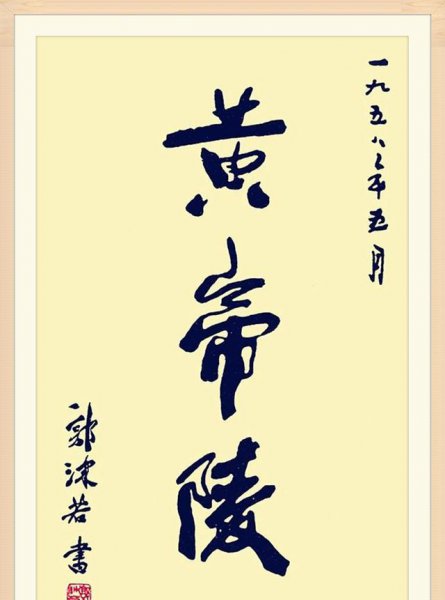 一九五八年五月
黄帝陵
郭沫若書